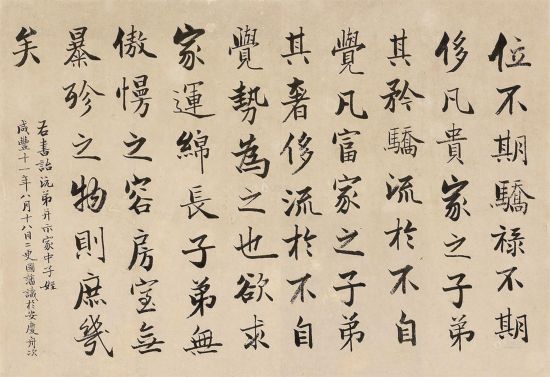 位不期驕禄不期
侈凡貴家之子弟
其矜驕流於不自
覺凡富家之子弟
其奢侈流於不自
覺勢為之也欲求
家運綿長子弟無
傲慢之容房室無
暴殄之物則庶幾
矣
右書詒沅弟并示家中子姪
咸豐十一年八月十八日二更國藩識於安慶舟次